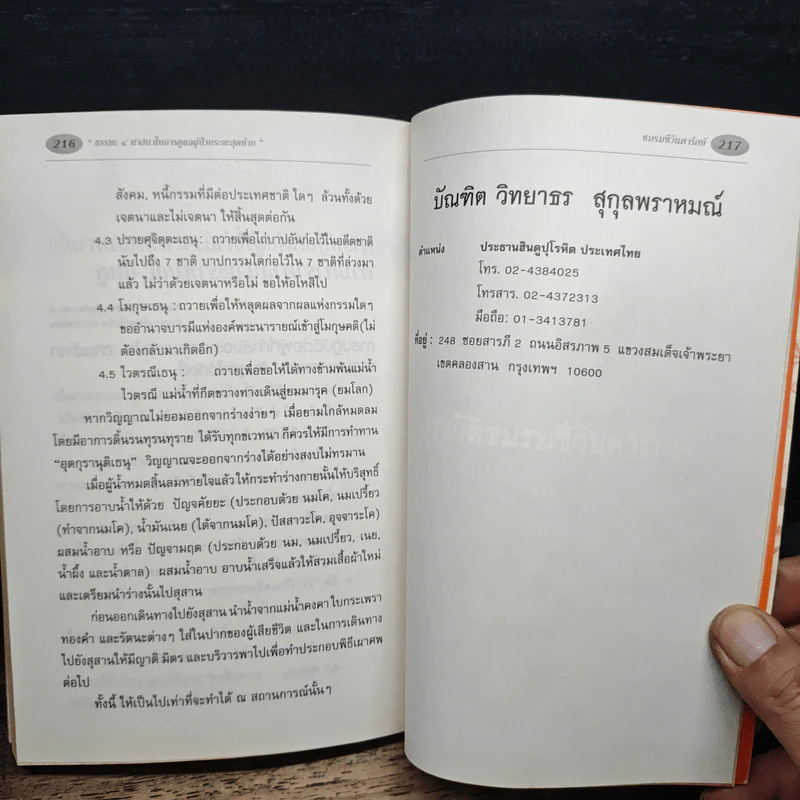 216 " ธรรมะ ๔ ศาสนาในการดูแลผู้ป่วยระยะสุดท้าย "
สังคม, หนี้กรรมที่มีต่อประเทศชาติ ใดๆ ล้วนทั้งด้วย
เจตนาและไม่เจตนา ให้สิ้นสุดต่อกัน
4.3 ปรายศฺจิตฺตะเธนุ: ถวายเพื่อไถ่บาปอันก่อไว้ในอดีตชาติ
นับไปถึง 7 ชาติ บาปกรรมใดก่อไว้ใน 7 ชาติที่ล่วงมา
แล้ว ไม่ว่าด้วยเจตนาหรือไม่ ขอให้อโหสิไป
4.4 โมกฺษเธนุ : ถวายเพื่อให้หลุดผลจากผลแห่งกรรมใดๆ
ขออำนาจบารมีแห่งองค์พระนารายณ์เข้าสู่โมกฺษคติ(ไม่
ต้องกลับมาเกิดอีก)
4.5 ไวตรณีเธนุ : ถวายเพื่อขอให้ได้ทางข้ามพ้นแม่น้ำ
ไวตรณี แม่น้ำที่กีดขวางทางเดินสู่ยมมารุค (ยมโลก)
หากวิญญาณไม่ยอมออกจากร่างง่ายๆ เมื่อยามใกล้หมดลม
โดยมีอาการดิ้นรนทุรนทุราย ได้รับทุกขเวทนา ก็ควรให้มีการทำทาน
"อุตกุรานุติเธนุ" วิญญาณจะออกจากร่างได้อย่างสงบไม่ทรมาน
เมื่อผู้นำหมดสิ้นลมหายใจแล้วให้กระทำร่างกายนั้นให้บริสุทธิ์
โดยการอาบน้ำให้ด้วย ปัญจคัยยะ (ประกอบด้วย นมโค, นมเปรี้ยว
(ทำจากนมโค), น้ำมันเนย (ได้จากนมโค), ปัสสาวะโค, อุจจาระโค)
ผสมน้ำอาบ หรือ ปัญจามฤต (ประกอบด้วย นม, นมเปรี้ยว, เนย,
น้ำผึ้ง และน้ำตาล) ผสมน้ำอาบ อาบน้ำเสร็จแล้วให้สวมเสื้อผ้าใหม่
และเตรียมนำร่างนั้นไปสุสาน
ก่อนออกเดินทางไปยังสุสาน นำน้ำจากแม่น้ำคงคา ใบกระเพรา
ทองคำ และรัตนะต่างๆ ใส่ในปากของผู้เสียชีวิต และในการเดินทาง
ไปยังสุสานให้มีญาติ มิตร และบริวารพาไปเพื่อทำประกอบพิธีเผาศพ
ต่อไป
ทั้งนี้ ให้เป็นไปเท่าที่จะทำได้ ณ สถานการณ์นั้นๆ
ชมรมชีวันตารักษ์ 217
บัณฑิต วิทยาธร สุกุลพราหมณ์
ตำแหน่ง ประธานฮินดูปุโรหิต ประเทศไทย
โทร. 02-4384025
โทรสาร. 02-4372313
มือถือ: 01-3413781
ที่อยู่ : 248 ซอยสารภี 2 ถนนอิสรภาพ 5 แขวงสมเด็จเจ้าพระยา
เขตคลองสาน กรุงเทพฯ 10600